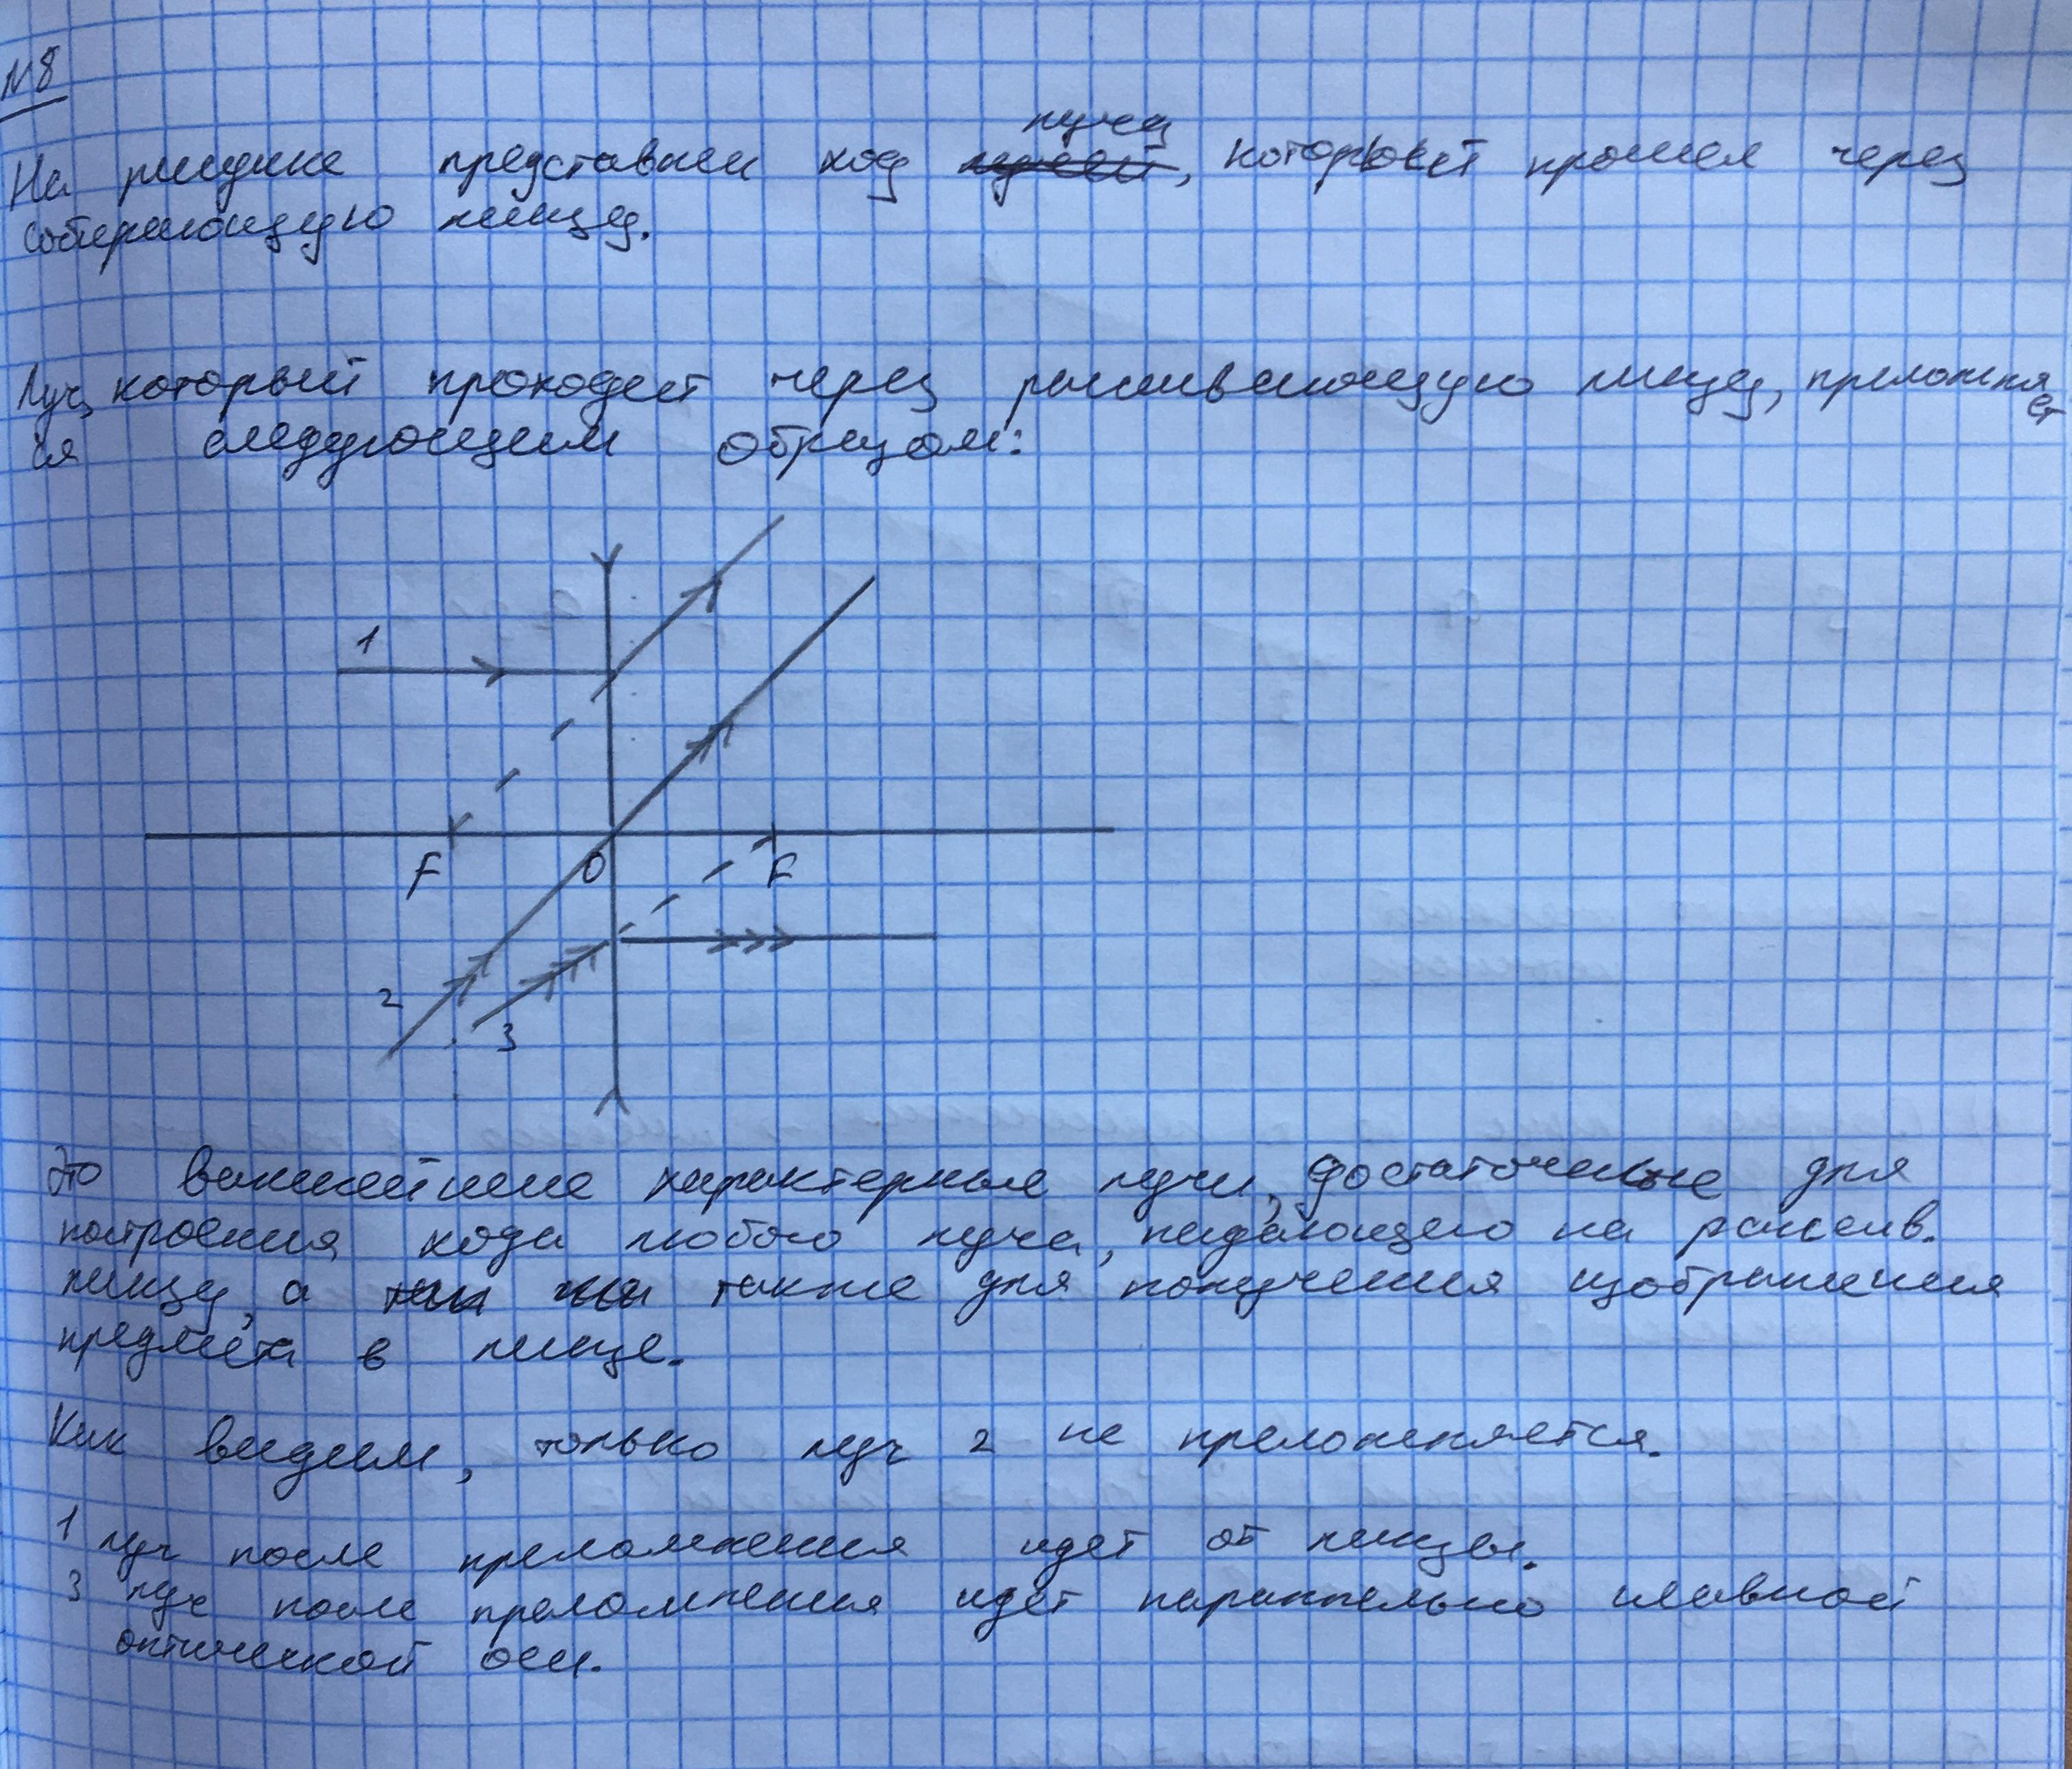 №8
На рисунке представлен ход луча, который прошел через
собирающую линзу.
Луч, который проходит через рассеивающую линзу, преломляет
ся следующим образом:
1
F
O
F
2
3
Это важнейшие характерные лучи, достаточные для
построения хода любого луча, падающего на рассеив.
линзу, а также для получения изображения
предмета в линзе.
Как видим, только луч 2 не преломляется.
1 луч после преломления идет от линзы.
3 луч после преломления идет параллельно главной
оптической оси.